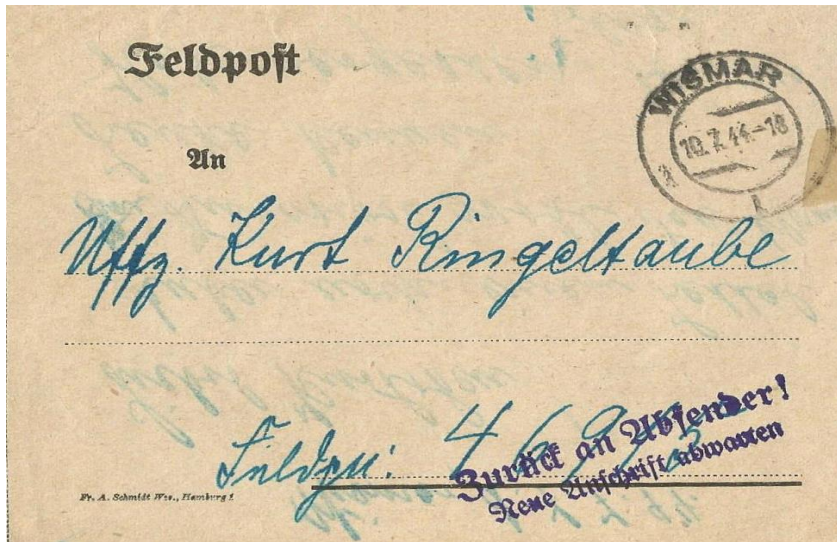 Feldpost
WISMAR
10.7.44.-18
An
Uffz. Kurt Ringeltaube
Zurück an Absender!
Neue Anschrift abwarten
Fr. A. Schmidt Wwe., Hamburg 1